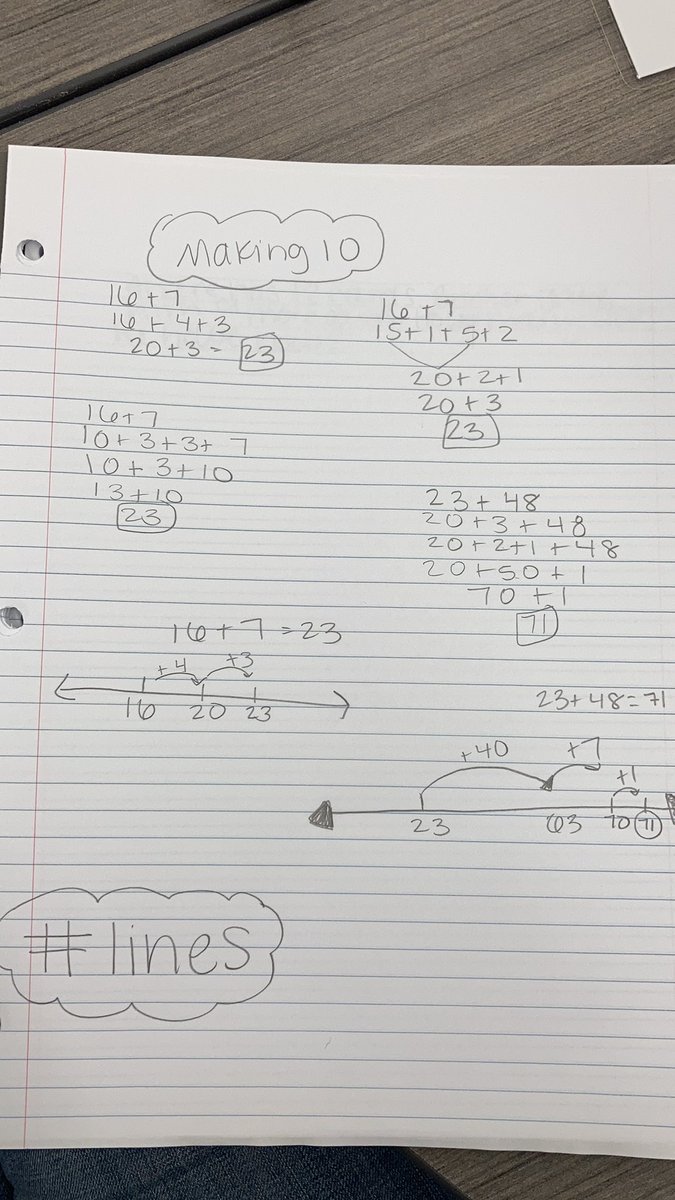 Making 10
16+7
16+4+3
20+3= 23
16+7
15+1+5+2
20+2+1
20+3
23
16+7
10+3+3+7
10+3+10
13+10
23
23+48
20+3+48
20+2+1+48
20+50+1
70+1
71
16+7=23
+4 +3
16 20 23
23+48=71
+40 +7 +1
23 63 70 71
#lines